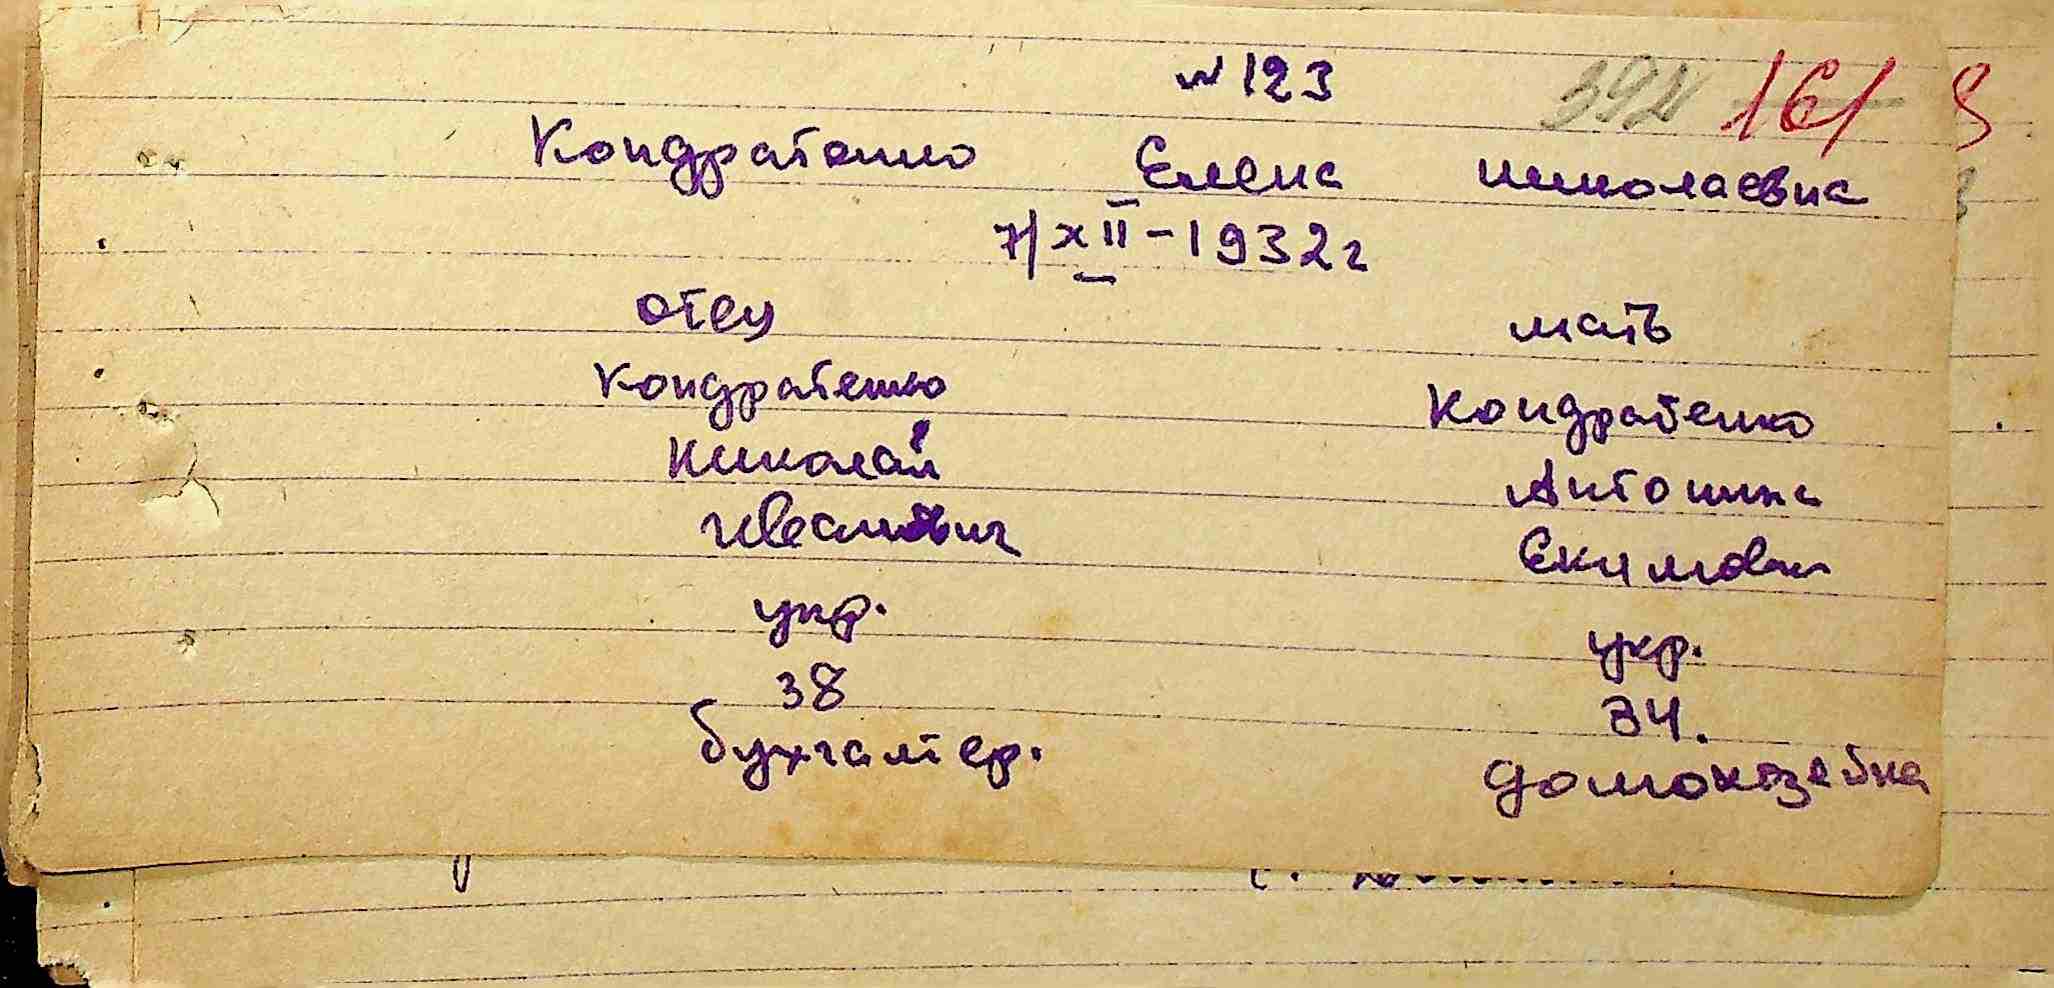 № 123
161
Кондратенко Елена Николаевна
7/XII-1932г
отец мать
Кондратенко Кондратенко
Николай Антонина
Иванович Екимовна
укр. укр.
38 34.
бухгалтер. домохозяйка